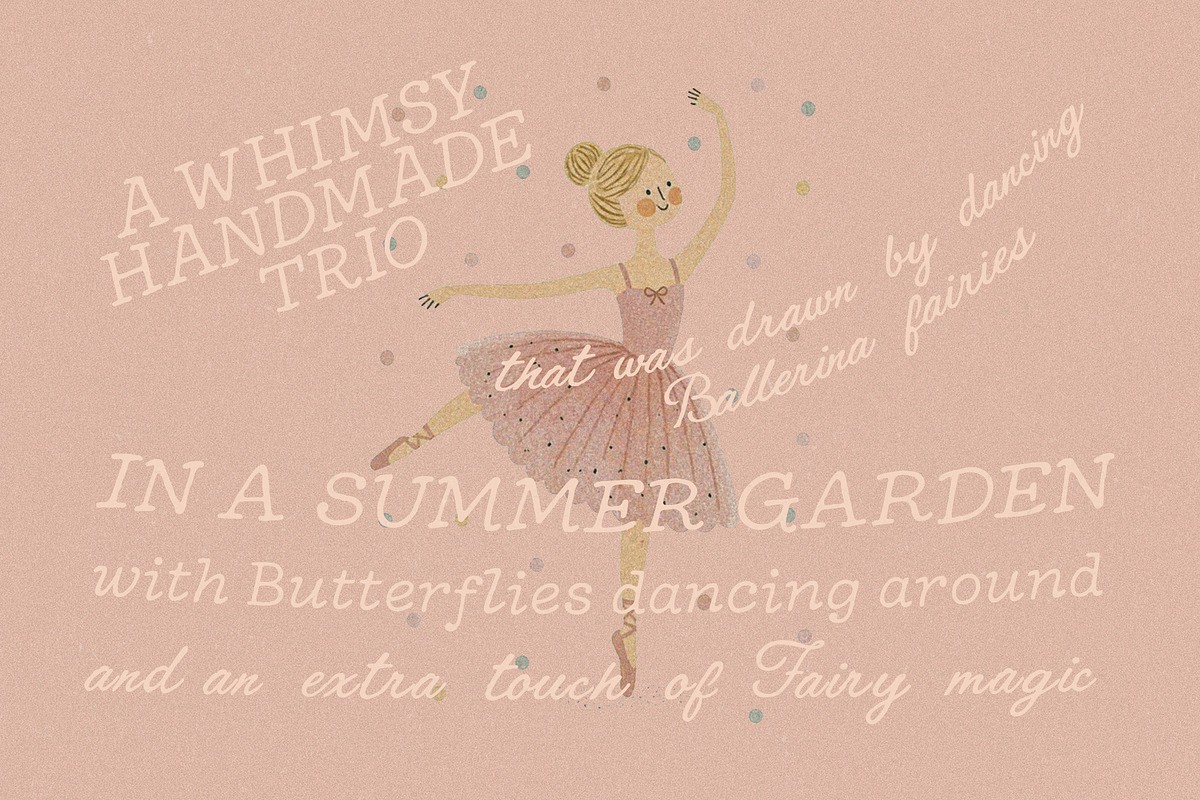 A WHIMSY
HANDMADE
TRIO
that was drawn by dancing
Ballerina fairies
IN A SUMMER GARDEN
with Butterflies dancing around
and an extra touch of Fairy magic